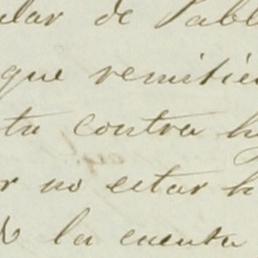 ular de Pabl
que remitie
ta contra h
r no estar h
la cuenta